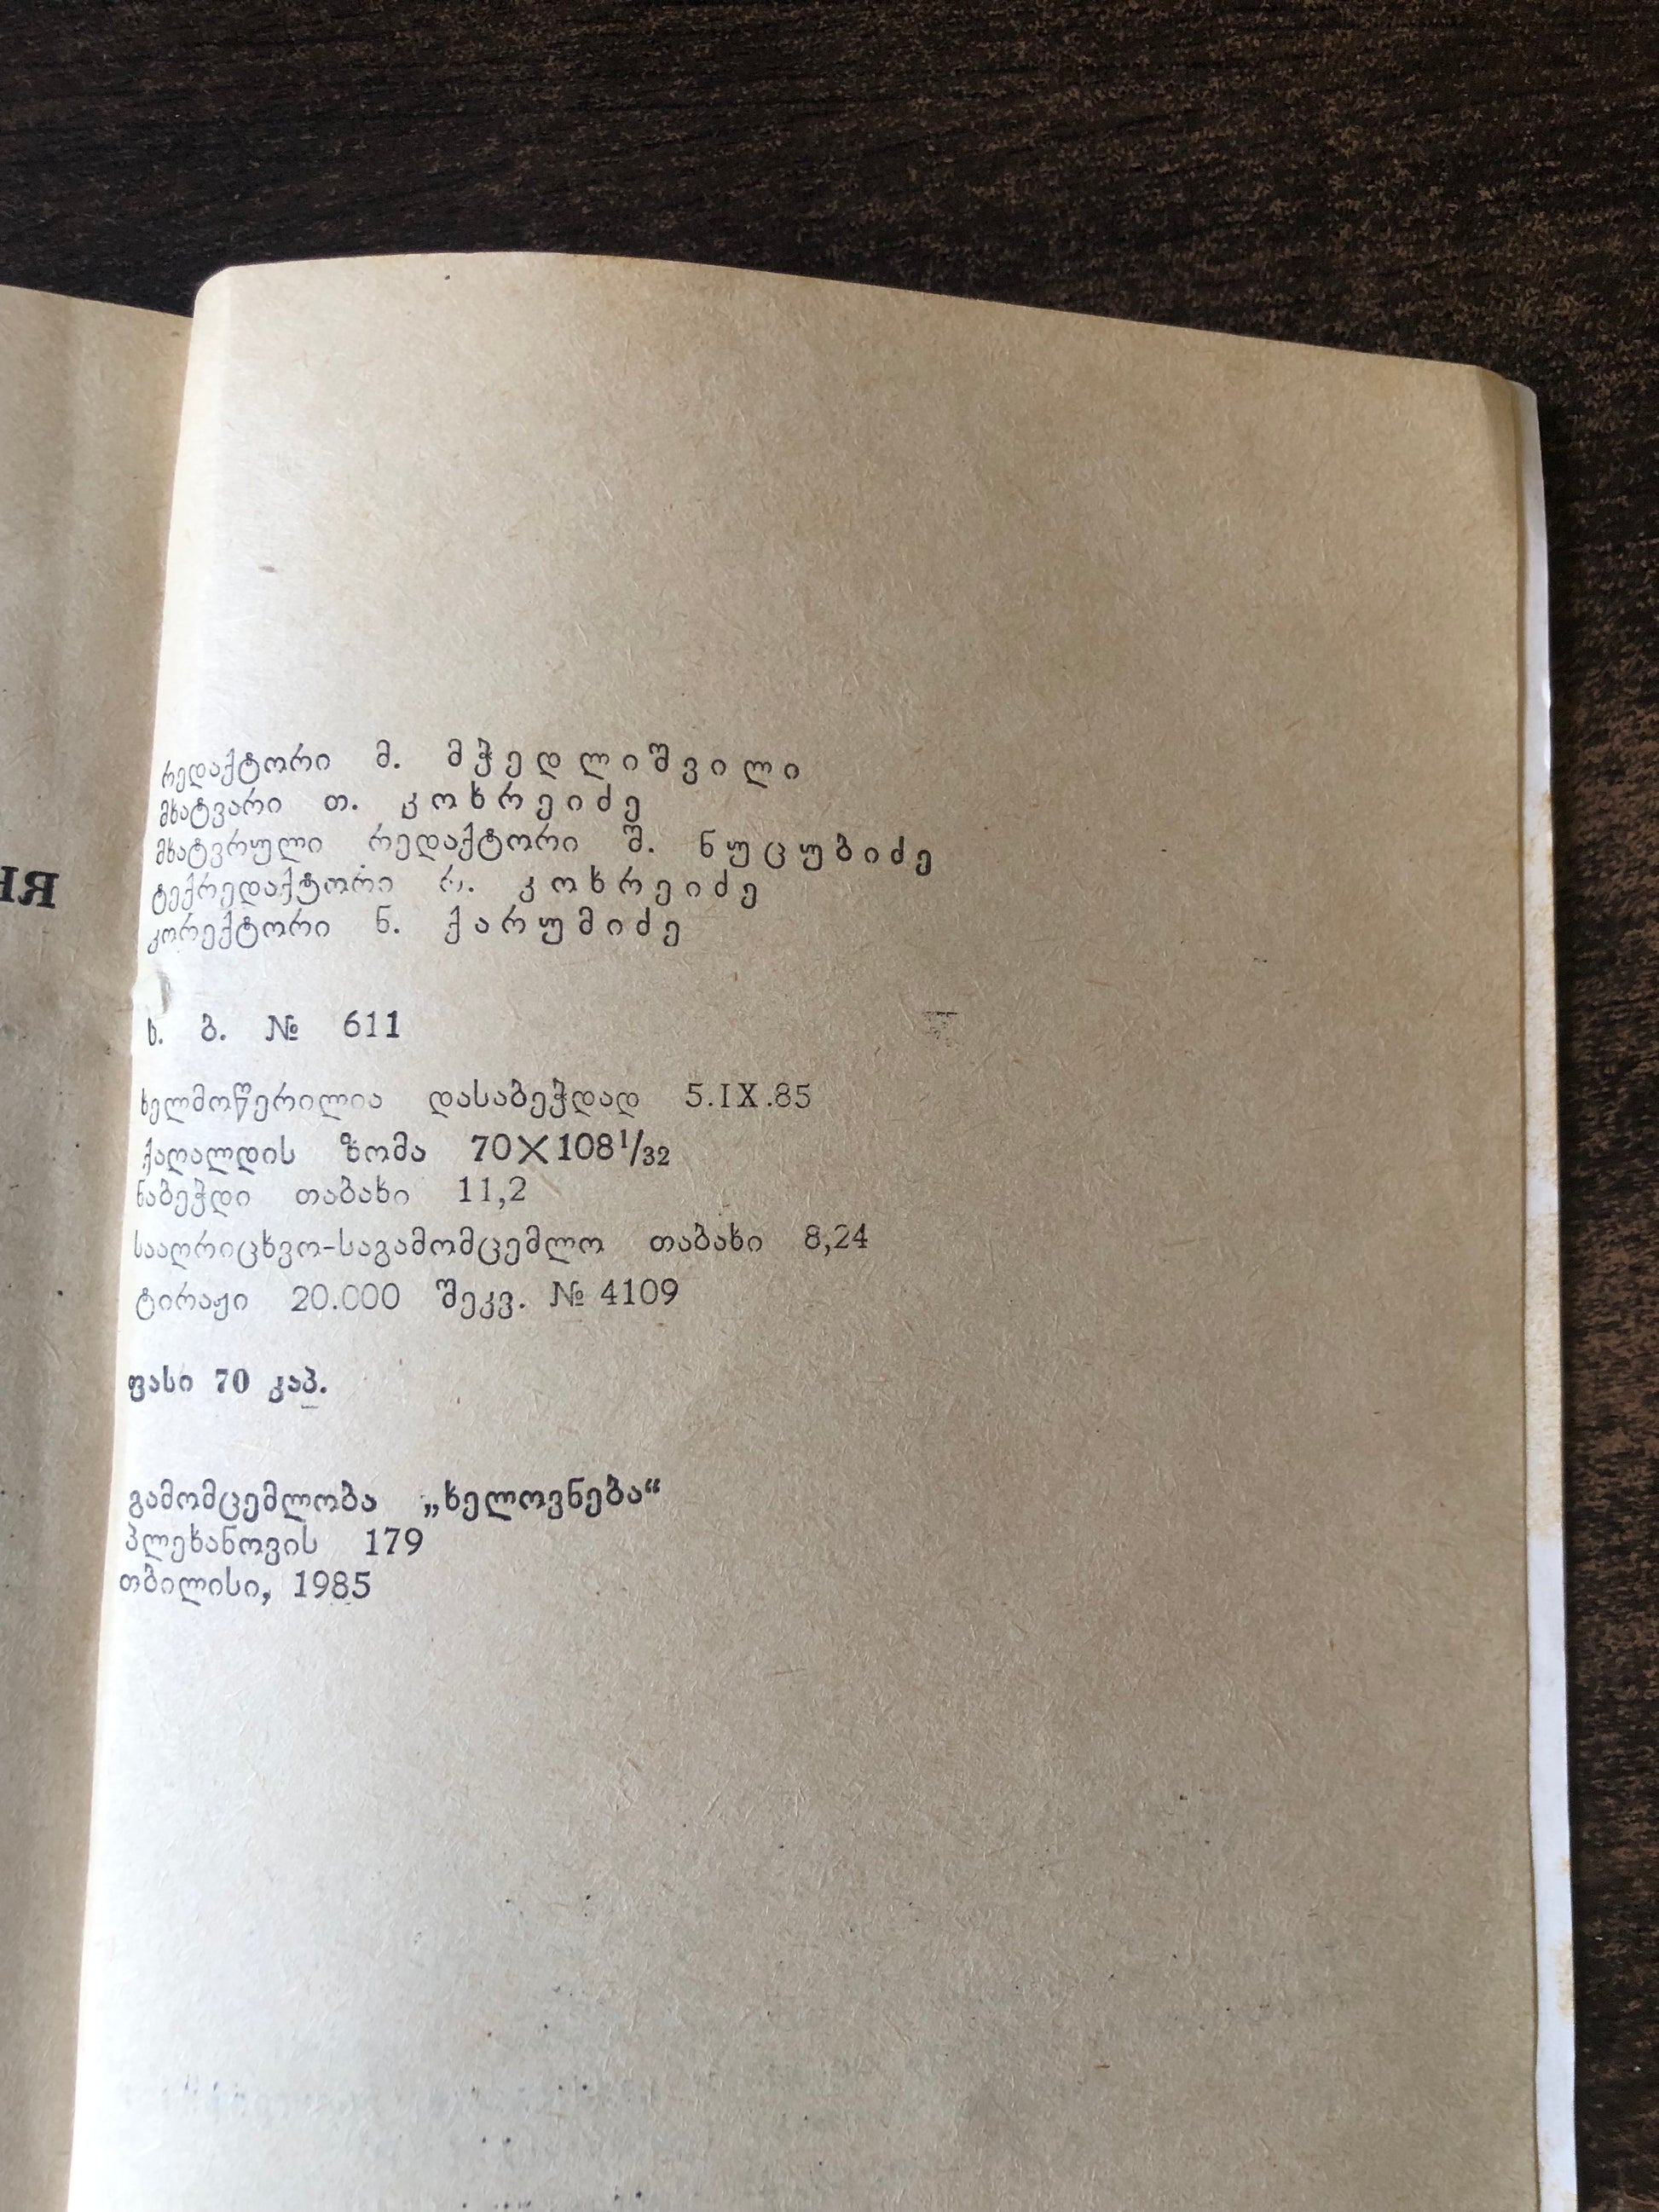 რედაქტორი მ. მჭედლიშვილი
მხატვარი თ. კოხრეიძე
მხატვრული რედაქტორი შ. ნუცუბიძე
ტექრედაქტორი კოხრეიძე
კორექტორი ნ. ქარუმიძე
ხ. ბ. № 611
ხელმოწერილია დასაბეჭდად 5.IX.85
ქაღალდის ზომა 70×108¹/₃₂
ნაბეჭდი თაბახი 11,2
სააღრიცხვო-საგამომცემლო თაბახი 8,24
ტირაჟი 20.000 შეკვ. № 4109
ფასი 70 კაპ.
გამომცემლობა „ხელოვნება“
პლეხანოვის 179
თბილისი, 1985